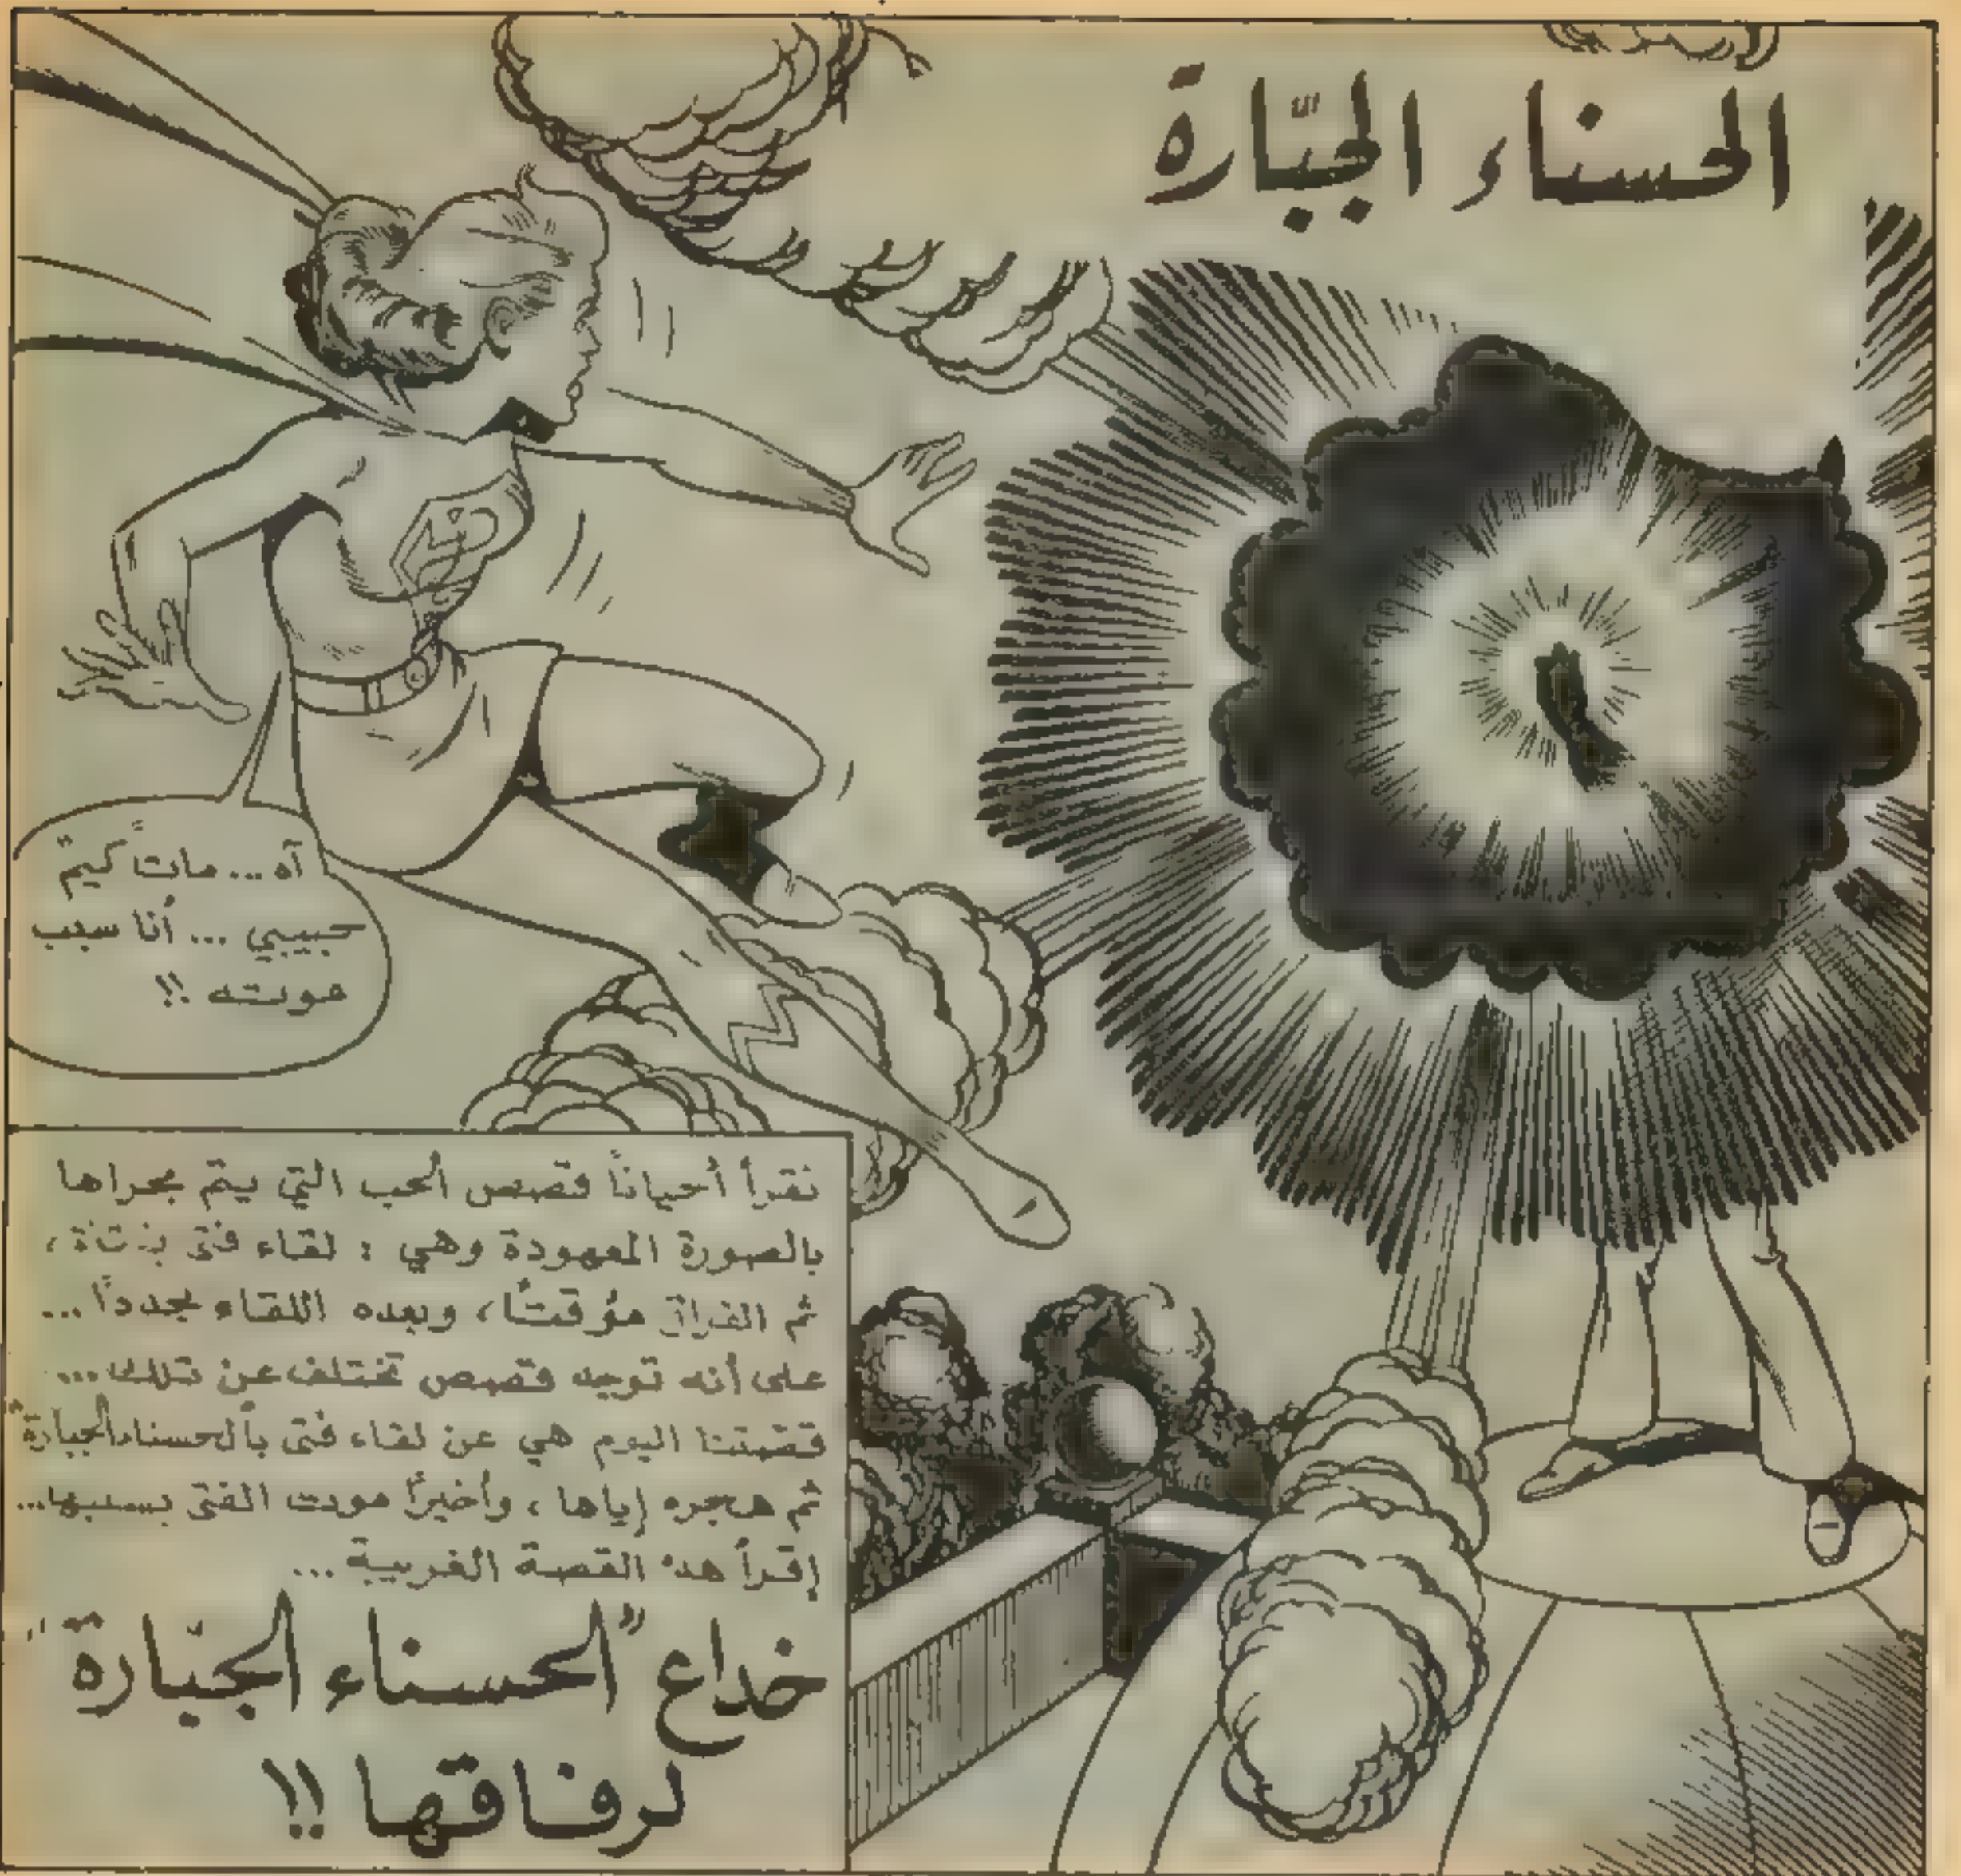 الحسناء الجبّارة
آه... ماتَ "كيم"
حبيبي ... أنا سبب
موته !!
نقرأ أحياناً قصص الحب التي يتم مجراها
بالصورة المعهودة وهي : لقاء فتى بفتاة ،
ثم الفراق مؤقتاً ، وبعده اللقاء مجدداً ...
على أنه توجد قصص تختلف عن تلك ...
قصتنا اليوم هي عن لقاء فتى بـ"الحسناء الجبارة"
ثم هجره إياها ، وأخيراً موت الفتى بسببها ...
إقرأ هذه القصة الغريبة ...
خداع "الحسناء الجبّارة"
لرفاقها !!